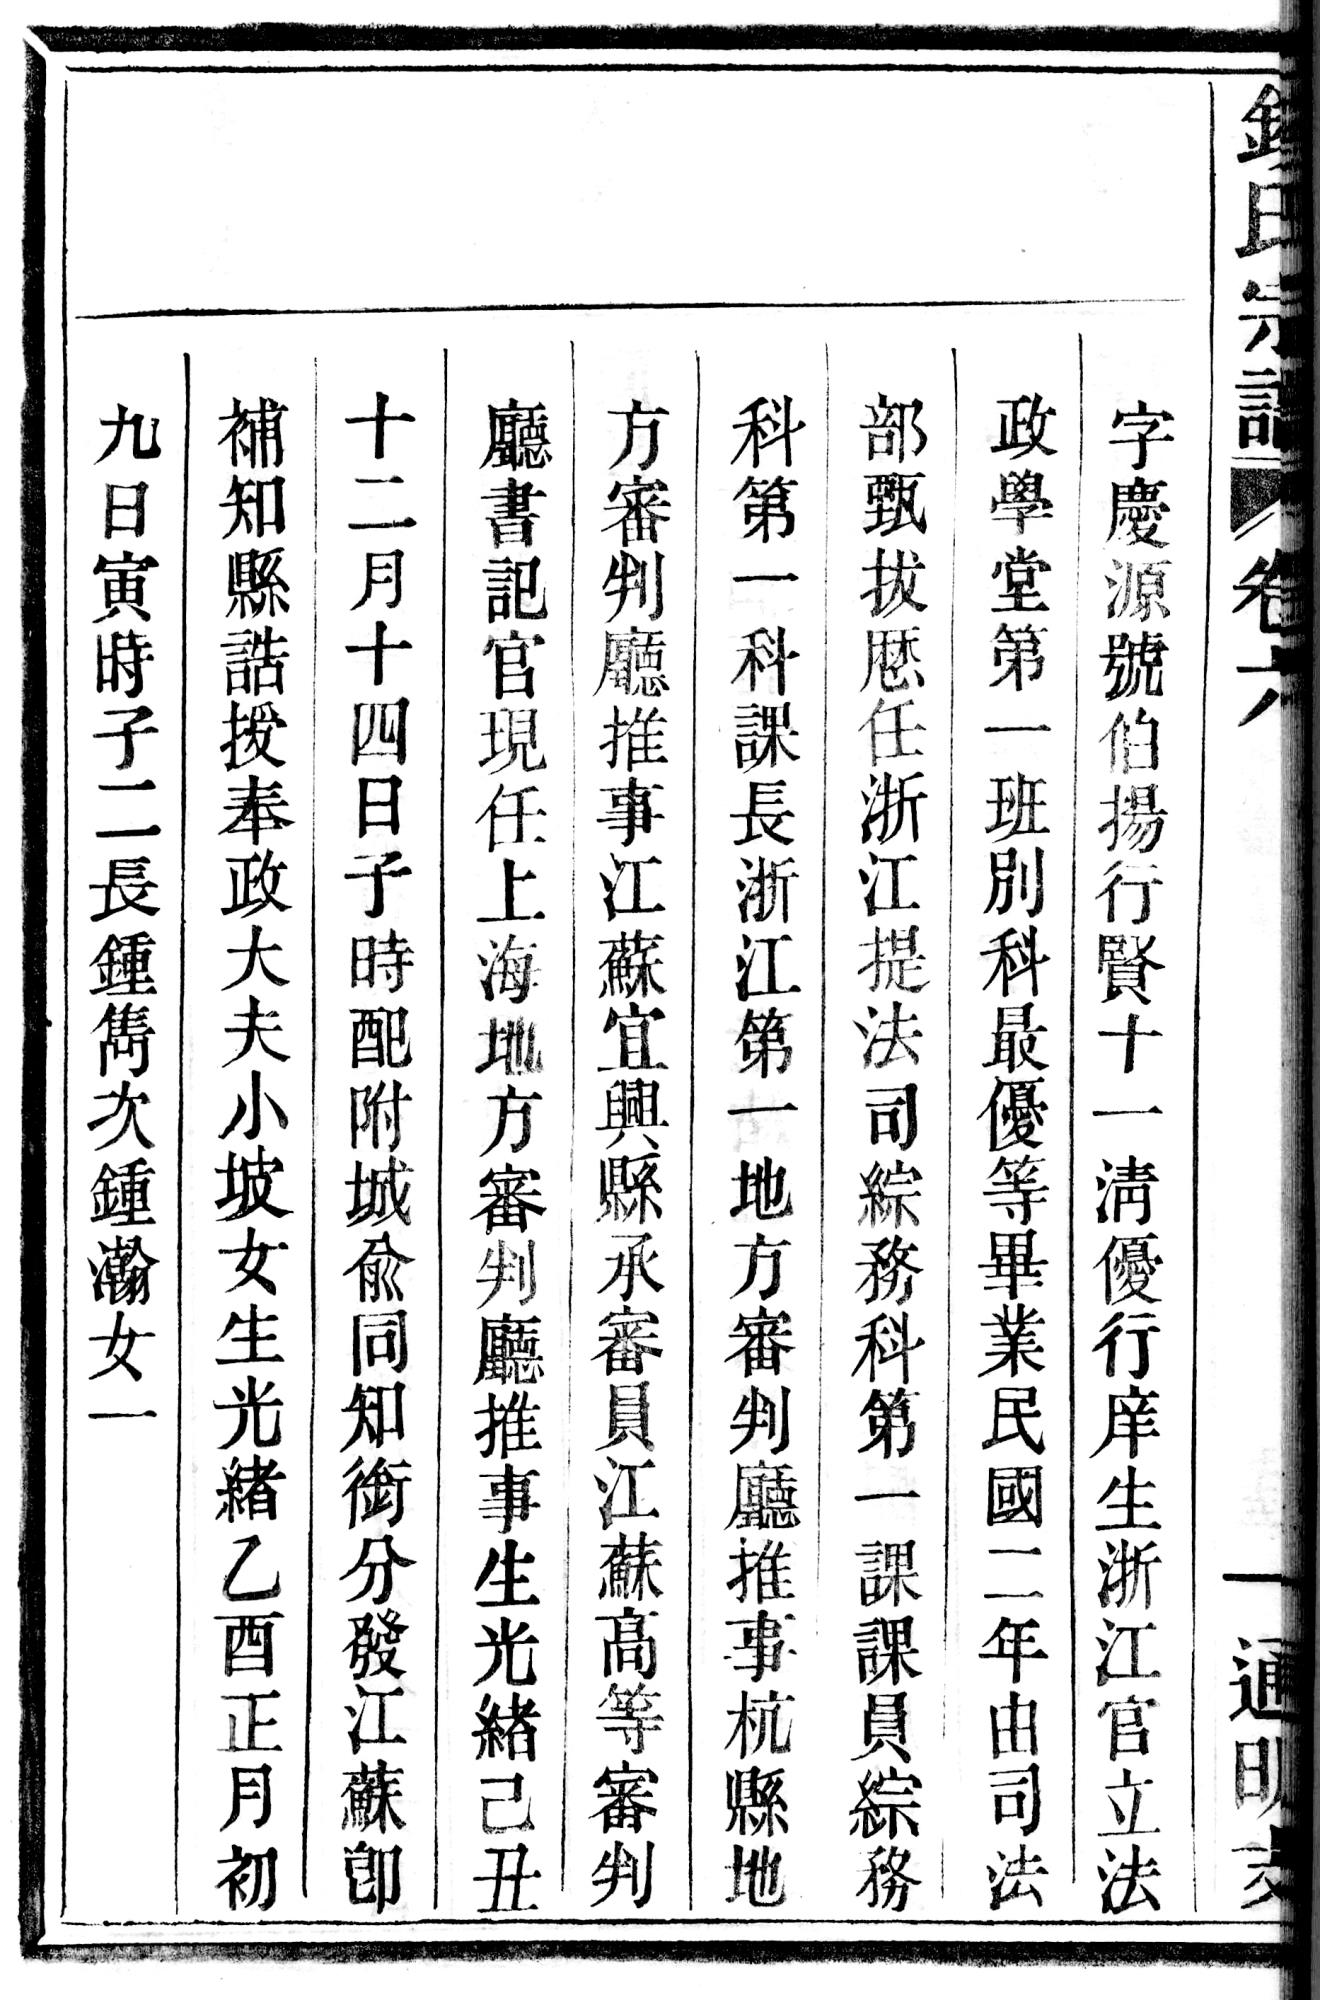 鍾氏宗譜 卷六 一 通明支
字慶源號伯揚行賢十一淸優行庠生浙江官立法
政學堂第一班別科最優等畢業民國二年由司法
部甄拔歷任浙江提法司綜務科第一課課員綜務
科第一科課長浙江第一地方審判廳推事杭縣地
方審判廳推事江蘇宜興縣承審員江蘇高等審判
廳書記官現任上海地方審判廳推事生光緒己丑
十二月十四日子時配附城俞同知銜分發江蘇卽
補知縣誥授奉政大夫小坡女生光緒乙酉正月初
九日寅時子二長鍾雋次鍾瀚女一